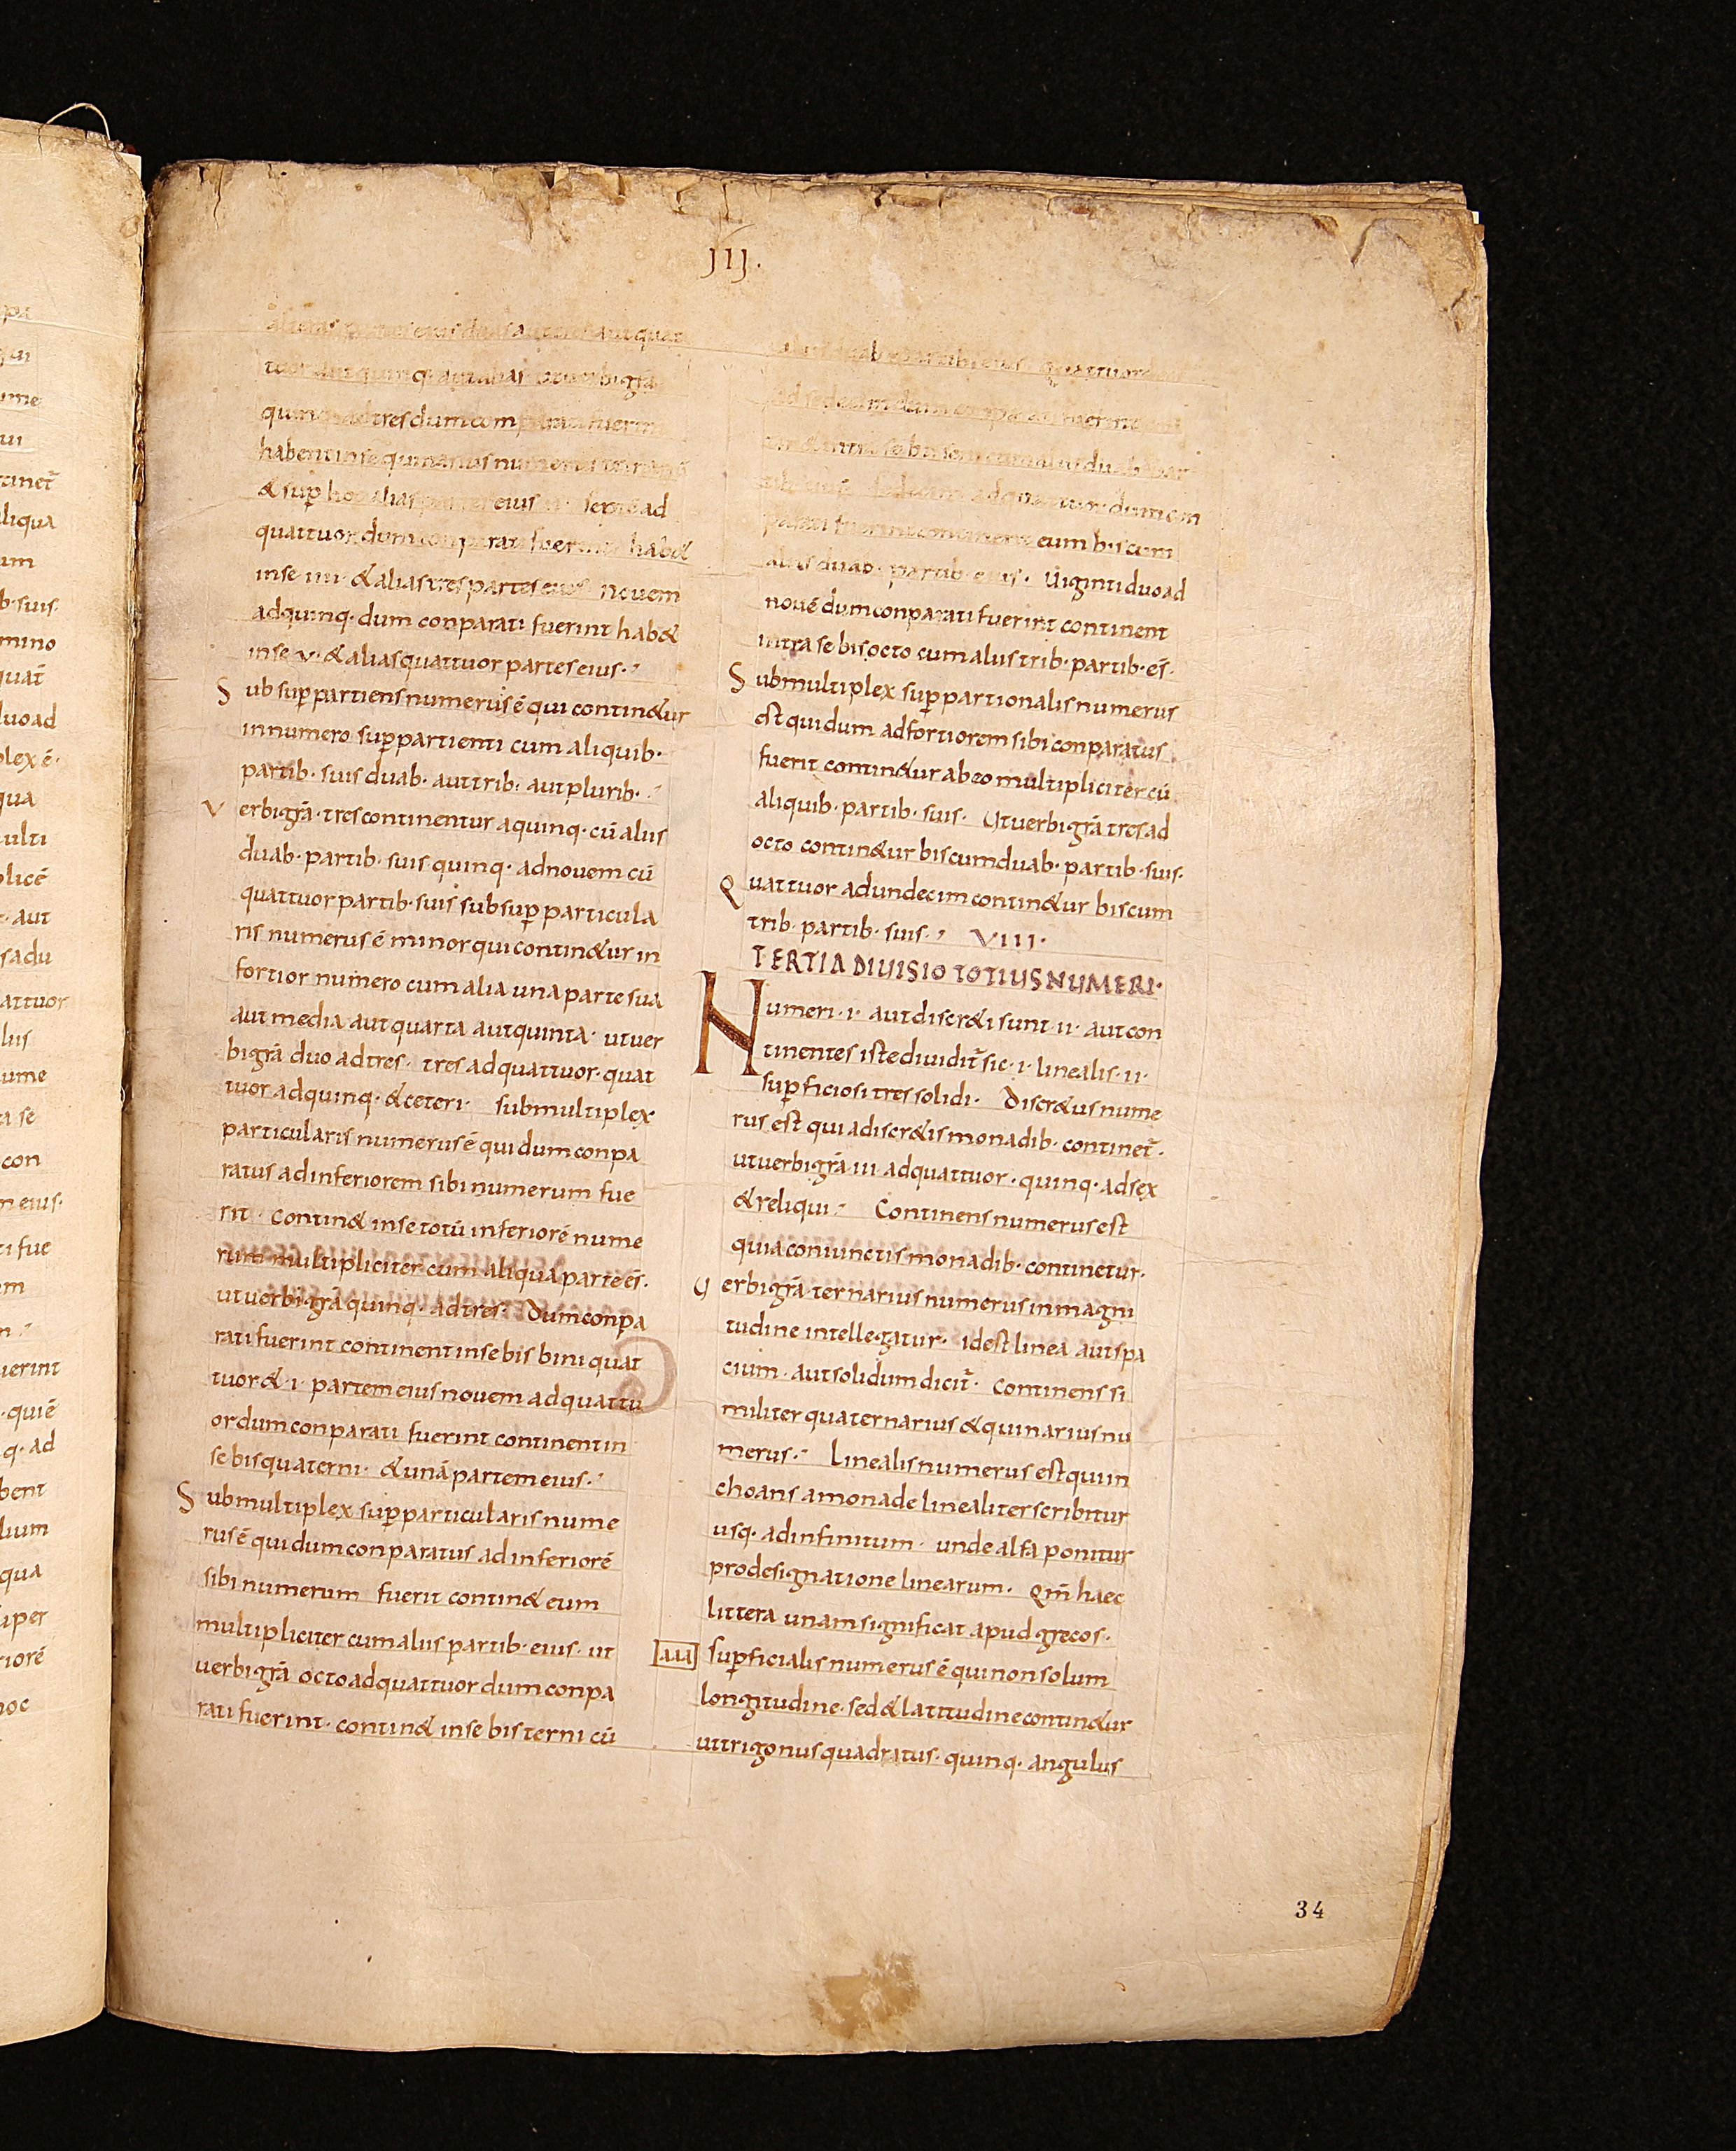 III.
alias partes eius duas aut tres aut quat
tuor aut quinq· aut alias ut uerbi grā
quinq· ad tres dum comparati fuerint
habent in se quinarius numerus
& sup hoc alias partes eius ii· septē ad
quattuor dum conparati fuerint hab&
in se iiii· & alias tres partes eius nouem
ad quinq· dum conparati fuerint hab&
in se v· & alias quattuor partes eius·
Sub suppartiens numerus ē qui contin&ur
in numero suppartienti cum aliquib·
partib· suis duab· aut trib· aut plurib·
Verbi grā· tres continentur a quinq· cū aliis
duab· partib· suis quinq· ad nouem cū
quattuor partib· suis sub supparticula
ris numerus ē minor qui contin&ur in
fortior numero cum alia una parte sua
aut media aut quarta aut quinta· ut uer
bi grā duo ad tres· tres ad quattuor· quat
tuor ad quinq· & ceteri· submultiplex·
particularis numerus ē qui dum conpa
ratus ad inferiorem sibi numerum fue
rit· contin& in se totū inferiorē nume
rum multipliciter cum aliqua parte ei̅s·
ut uerbi grā quinq· ad tres· Dum conpa
rati fuerint continent in se bis bini quat
tuor & ·i· partem eius nouem ad quattu
or dum conparati fuerint continent in
se bis quaterni· & unā partem eius·
Submultiplex supparticularis nume
rus ē qui dum conparatus ad inferiorē
sibi numerum fuerit contin& eum
multipliciter cum aliis partib· eius· ut
uerbi grā octo ad quattuor dum conpa
rati fuerint· contin& in se bis terni cū
duab· partib· eius quattuor
ad sedecim dum fuerint
intra se bis cum aliis duab· par
tib· dum con
parati fuerint eum bis cum
aliis duab· partib· eius· Uiginti duo ad
nouē dum conparati fuerint continent
intra se bis octo cum aliis trib· partib· ei̅s·
Submultiplex suppartionalis numerus
est qui dum ad fortiorem sibi conparatus
fuerit contin&ur ab eo multipliciter cū
aliquib· partib· suis· Ut uerbi grā tres ad
octo contin&ur bis cum duab· partib· suis·
Quattuor ad undecim contin&ur bis cum
trib· partib· suis· VIII·
TERTIA DIUISIO TOTIUS NUMERI·
Numeri ·i· aut discr&i sunt ·ii· aut con
tinentes iste diuidit̄ sic ·i· linealis ·ii·
supficiosi tres solidi· Discr&us nume
rus est qui a discr&is monadib· continet̄·
ut uerbi grā iii ad quattuor· quinq· ad sex
& reliqui· Continens numerus est
qui a coniunctis monadib· continetur·
Uerbi grā ternarius numerus in magni
tudine intellegatur· id est linea aut spa
cium· aut solidum dicit̄· continens si
militer quaternarius & quinarius nu
merus· Linealis numerus est qui in
choans a monade linealiter scribitur
usq· ad infinitum· unde alfa ponitur
pro designatione linearum· Qm̄ haec
littera unam significat apud grecos·
Supficialis numerus ē qui non solum
longitudine· sed & latitudine contin&ur
ut trigonus quadratus· quinq· angulus
34